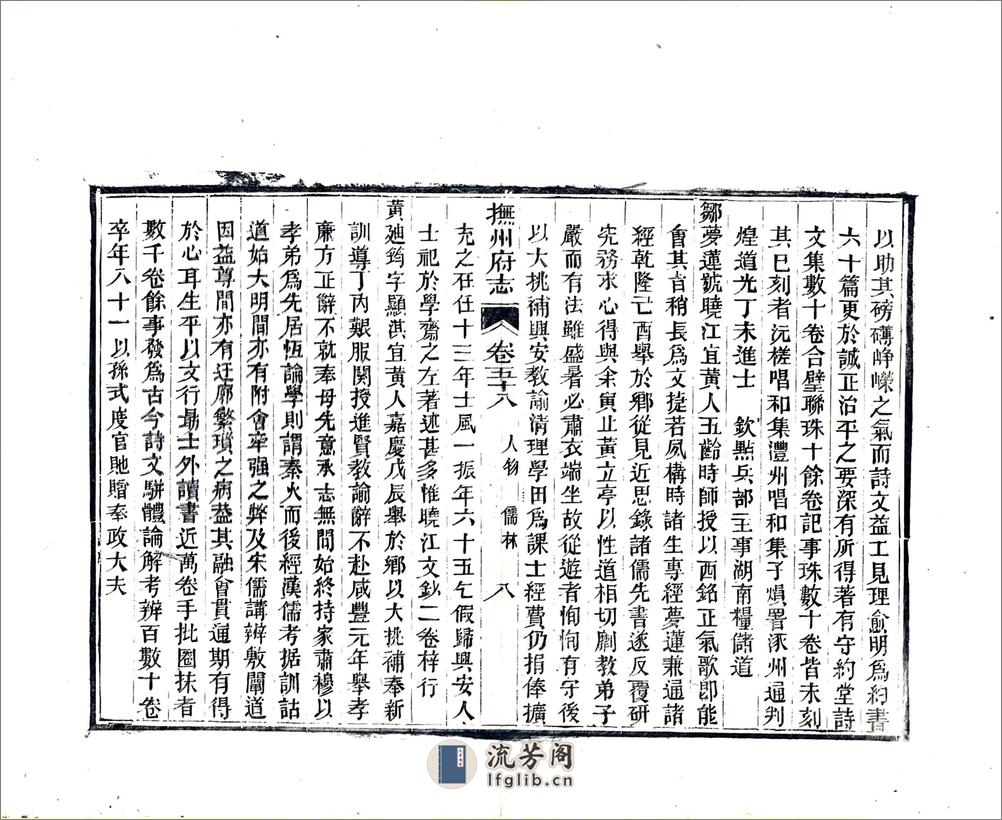 以助其磅礴崢嶸之氣而詩文益工見理愈明爲約書
六十篇更於誠正治平之要深有所得著有守約堂詩
文集數十卷合璧聯珠十餘卷記事珠數十卷皆未刻
其已刻者沅槎唱和集灃州唱和集子熉署涿州通判
煌道光丁未進士　欽點兵部主事湖南糧儲道
鄒夢蓮號曉江宜黃人五齡時師授以西銘正氣歌即能
會其旨稍長爲文捷若夙構時諸生專經夢蓮兼通諸
經乾隆己酉舉於鄉從見近思錄諸儒先書遂反覆研
究務求心得與余寅止黃立亭以性道相切劘教弟子
嚴而有法雖盛暑必肅衣端坐故從遊者恂恂有守後
以大挑補興安教諭清理學田爲課士經費仍捐俸擴
撫州府志 卷五十八 人物 儒林 八
充之在任十三年士風一振年六十五乞假歸興安人
士祀於學齋之左著述甚多惟曉江文鈔二卷梓行
黃廸筠字顯淇宜黃人嘉慶戊辰舉於鄉以大挑補奉新
訓導丁內艱服闋授進賢教諭辭不赴咸豐元年舉孝
廉方正辭不就奉母先意承志無間始終持家肅穆以
孝弟爲先居恆論學則謂秦火而後經漢儒考据訓詁
道始大明間亦有附會牽强之弊及宋儒講辨敷闡道
因益尊間亦有迂廓繁瑣之病葢其融會貫通期有得
於心耳生平以文行勗士外讀書近萬卷手批圈抹者
數千卷餘事發爲古今詩文駢體論解考辨百數十卷
卒年八十一以孫式度官貤贈奉政大夫
流芳阁
lfglib.cn